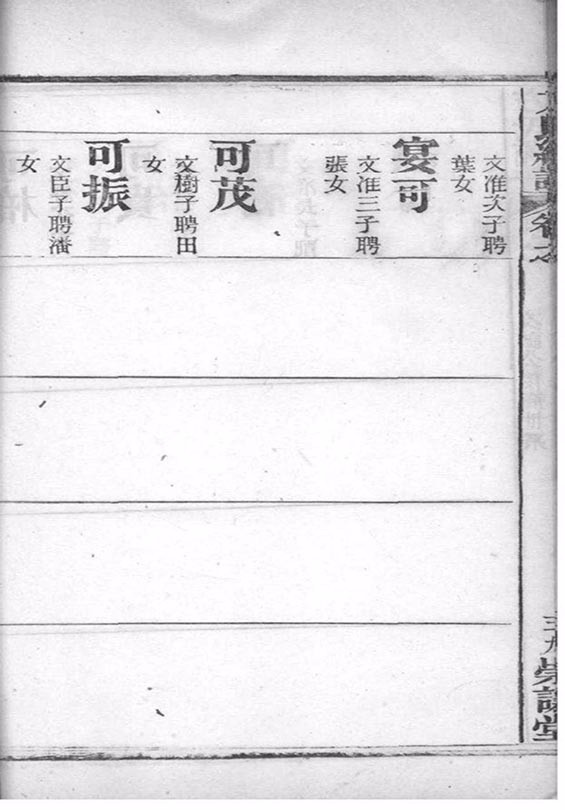 文准次子聘
葉女
宴可
文准三子聘
張女
可茂
文樹子聘田
女
可振
文臣子聘潘
女
卷之
三九